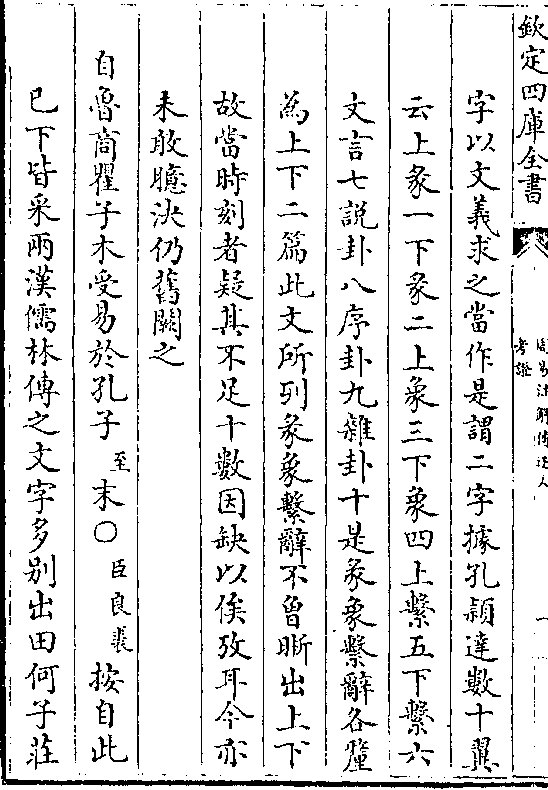 欽定四庫全書
周易注解傳述人
考證
一
字以文義求之當作是謂二字據孔頴達數十翼
云上彖一下彖二上象三下象四上繫五下繫六
文言七説卦八序卦九雜卦十是彖象繫辭各釐
為上下二篇此文所列彖象繫辭不曽晰出上下
故當時刻者疑其不足十數因缺以俟攷耳今亦
未敢臆決仍舊闕之
自魯商瞿子木受易於孔子至末〇臣良裘按自此
已下皆采兩漢儒林傳之文字多别出田何子莊